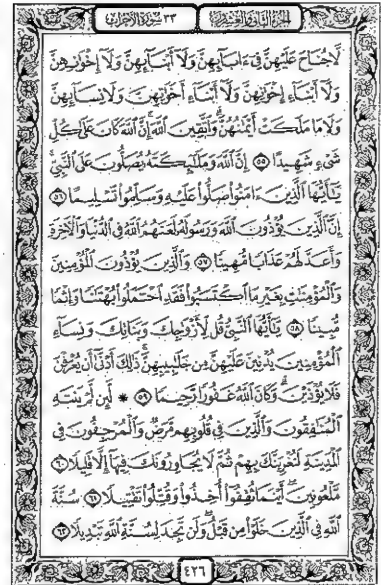 الجزء الثاني والعشرون ٣٣ سورة الأحزاب
لَّا جُنَاحَ عَلَيْهِنَّ فِىٓ ءَابَآئِهِنَّ وَلَآ أَبْنَآئِهِنَّ وَلَآ إِخْوَٰنِهِنَّ
وَلَآ أَبْنَآءِ إِخْوَٰنِهِنَّ وَلَآ أَبْنَآءِ أَخَوَٰتِهِنَّ وَلَا نِسَآئِهِنَّ
وَلَا مَا مَلَكَتْ أَيْمَٰنُهُنَّ ۗ وَٱتَّقِينَ ٱللَّهَ ۚ إِنَّ ٱللَّهَ كَانَ عَلَىٰ كُلِّ
شَىْءٍ شَهِيدًا ٥٥ إِنَّ ٱللَّهَ وَمَلَٰٓئِكَتَهُۥ يُصَلُّونَ عَلَى ٱلنَّبِىِّ ۚ
يَٰٓأَيُّهَا ٱلَّذِينَ ءَامَنُوا۟ صَلُّوا۟ عَلَيْهِ وَسَلِّمُوا۟ تَسْلِيمًا ٥٦
إِنَّ ٱلَّذِينَ يُؤْذُونَ ٱللَّهَ وَرَسُولَهُۥ لَعَنَهُمُ ٱللَّهُ فِى ٱلدُّنْيَا وَٱلْـَٔاخِرَةِ
وَأَعَدَّ لَهُمْ عَذَابًا مُّهِينًا ٥٧ وَٱلَّذِينَ يُؤْذُونَ ٱلْمُؤْمِنِينَ
وَٱلْمُؤْمِنَٰتِ بِغَيْرِ مَا ٱكْتَسَبُوا۟ فَقَدِ ٱحْتَمَلُوا۟ بُهْتَٰنًا وَإِثْمًا
مُّبِينًا ٥٨ يَٰٓأَيُّهَا ٱلنَّبِىُّ قُل لِّأَزْوَٰجِكَ وَبَنَاتِكَ وَنِسَآءِ
ٱلْمُؤْمِنِينَ يُدْنِينَ عَلَيْهِنَّ مِن جَلَٰبِيبِهِنَّ ۚ ذَٰلِكَ أَدْنَىٰٓ أَن يُعْرَفْنَ
فَلَا يُؤْذَيْنَ ۗ وَكَانَ ٱللَّهُ غَفُورًا رَّحِيمًا ٥٩ * لَّئِن لَّمْ يَنتَهِ
ٱلْمُنَٰفِقُونَ وَٱلَّذِينَ فِى قُلُوبِهِم مَّرَضٌ وَٱلْمُرْجِفُونَ فِى
ٱلْمَدِينَةِ لَنُغْرِيَنَّكَ بِهِمْ ثُمَّ لَا يُجَاوِرُونَكَ فِيهَآ إِلَّا قَلِيلًا ٦٠
مَّلْعُونِينَ ۖ أَيْنَمَا ثُقِفُوٓا۟ أُخِذُوا۟ وَقُتِّلُوا۟ تَقْتِيلًا ٦١ سُنَّةَ
ٱللَّهِ فِى ٱلَّذِينَ خَلَوْا۟ مِن قَبْلُ ۖ وَلَن تَجِدَ لِسُنَّةِ ٱللَّهِ تَبْدِيلًا ٦٢
٤٢٦